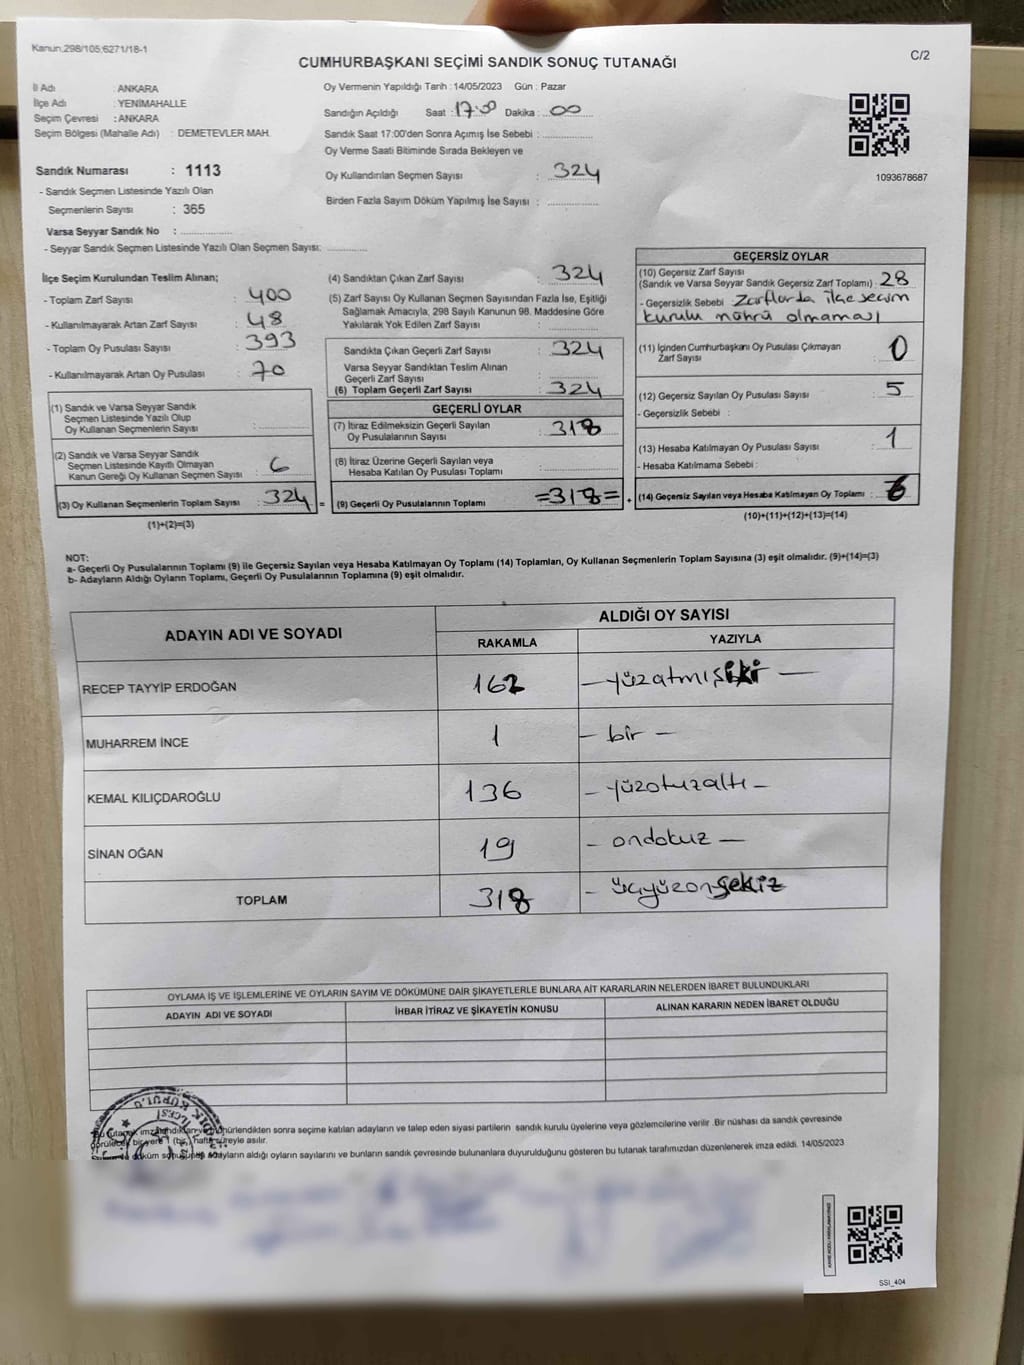 Kanun,298/105;6271/18-1
C/2
CUMHURBAŞKANI SEÇİMİ SANDIK SONUÇ TUTANAĞI
İl Adı : ANKARA
İlçe Adı : YENİMAHALLE
Seçim Çevresi : ANKARA
Seçim Bölgesi (Mahalle Adı) : DEMETEVLER MAH.
Sandık Numarası : 1113
- Sandık Seçmen Listesinde Yazılı Olan
Seçmenlerin Sayısı : 365
Varsa Seyyar Sandık No : ....................
- Seyyar Sandık Seçmen Listesinde Yazılı Olan Seçmen Sayısı: ...............
Oy Vermenin Yapıldığı Tarih : 14/05/2023 Gün : Pazar
Sandığın Açıldığı Saat : 17:00 Dakika : 00
Sandık Saat 17:00'den Sonra Açımış İse Sebebi : ....................
Oy Verme Saati Bitiminde Sırada Bekleyen ve
Oy Kullandırılan Seçmen Sayısı : 324
Birden Fazla Sayım Döküm Yapılmış İse Sayısı : ....................
1093678687
İlçe Seçim Kurulundan Teslim Alınan;
- Toplam Zarf Sayısı : 400
- Kullanılmayarak Artan Zarf Sayısı : 48
- Toplam Oy Pusulası Sayısı : 393
- Kullanılmayarak Artan Oy Pusulası : 70
(1) Sandık ve Varsa Seyyar Sandık
Seçmen Listesinde Yazılı Olup
Oy Kullanan Seçmenlerin Sayısı : ....................
(2) Sandık ve Varsa Seyyar Sandık
Seçmen Listesinde Kayıtlı Olmayan
Kanun Gereği Oy Kullanan Seçmen Sayısı : 6
(3) Oy Kullanan Seçmenlerin Toplam Sayısı : 324 =
(1)+(2)=(3)
(4) Sandıktan Çıkan Zarf Sayısı : 324
(5) Zarf Sayısı Oy Kullanan Seçmen Sayısından Fazla İse, Eşitliği
Sağlamak Amacıyla; 298 Sayılı Kanunun 98. Maddesine Göre
Yakılarak Yok Edilen Zarf Sayısı : ....................
Sandıkta Çıkan Geçerli Zarf Sayısı : 324
Varsa Seyyar Sandıktan Teslim Alınan
Geçerli Zarf Sayısı : ....................
(6) Toplam Geçerli Zarf Sayısı : 324
GEÇERLİ OYLAR
(7) İtiraz Edilmeksizin Geçerli Sayılan
Oy Pusulalarının Sayısı : 318
(8) İtiraz Üzerine Geçerli Sayılan veya
Hesaba Katılan Oy Pusulası Toplamı : ....................
(9) Geçerli Oy Pusulalarının Toplamı =318= +
GEÇERSİZ OYLAR
(10) Geçersiz Zarf Sayısı
(Sandık ve Varsa Seyyar Sandık Geçersiz Zarf Toplamı) : 28
- Geçersizlik Sebebi : Zarflarda ilçe seçim
kurulu mührü olmaması
(11) İçinden Cumhurbaşkanı Oy Pusulası Çıkmayan
Zarf Sayısı : 0
(12) Geçersiz Sayılan Oy Pusulası Sayısı : 5
- Geçersizlik Sebebi :
(13) Hesaba Katılmayan Oy Pusulası Sayısı : 1
- Hesaba Katılmama Sebebi :
(14) Geçersiz Sayılan veya Hesaba Katılmayan Oy Toplamı : 6
(10)+(11)+(12)+(13)=(14)
NOT:
a- Geçerli Oy Pusulalarının Toplamı (9) ile Geçersiz Sayılan veya Hesaba Katılmayan Oy Toplamı (14) Toplamları, Oy Kullanan Seçmenlerin Toplam Sayısına (3) eşit olmalıdır. (9)+(14)=(3)
b- Adayların Aldığı Oyların Toplamı, Geçerli Oy Pusulalarının Toplamına (9) eşit olmalıdır.
ADAYIN ADI VE SOYADI
ALDIĞI OY SAYISI
RAKAMLA YAZIYLA
RECEP TAYYİP ERDOĞAN 162 - yüzatmışiki -
MUHARREM İNCE 1 - bir -
KEMAL KILIÇDAROĞLU 136 - yüzotuzaltı -
SİNAN OĞAN 19 - ondokuz -
TOPLAM 318 - üçyüzonsekiz
OYLAMA İŞ VE İŞLEMLERİNE VE OYLARIN SAYIM VE DÖKÜMÜNE DAİR ŞİKAYETLERLE BUNLARA AİT KARARLARIN NELERDEN İBARET BULUNDUKLARI
ADAYIN ADI VE SOYADI İHBAR İTİRAZ VE ŞİKAYETİN KONUSU ALINAN KARARIN NEDEN İBARET OLDUĞU
Bu tutanak imzalandıktan ve mühürlendikten sonra seçime katılan adayların ve talep eden siyasi partilerin sandık kurulu üyelerine veya gözlemcilerine verilir. Bir nüshası da sandık çevresinde
görülecek bir yere 1 (bir) hafta süreyle asılır.
döküm sonucunda adayların aldığı oyların sayılarını ve bunların sandık çevresinde bulunanlara duyurulduğunu gösteren bu tutanak tarafımızdan düzenlenerek imza edildi. 14/05/2023
SSI_404